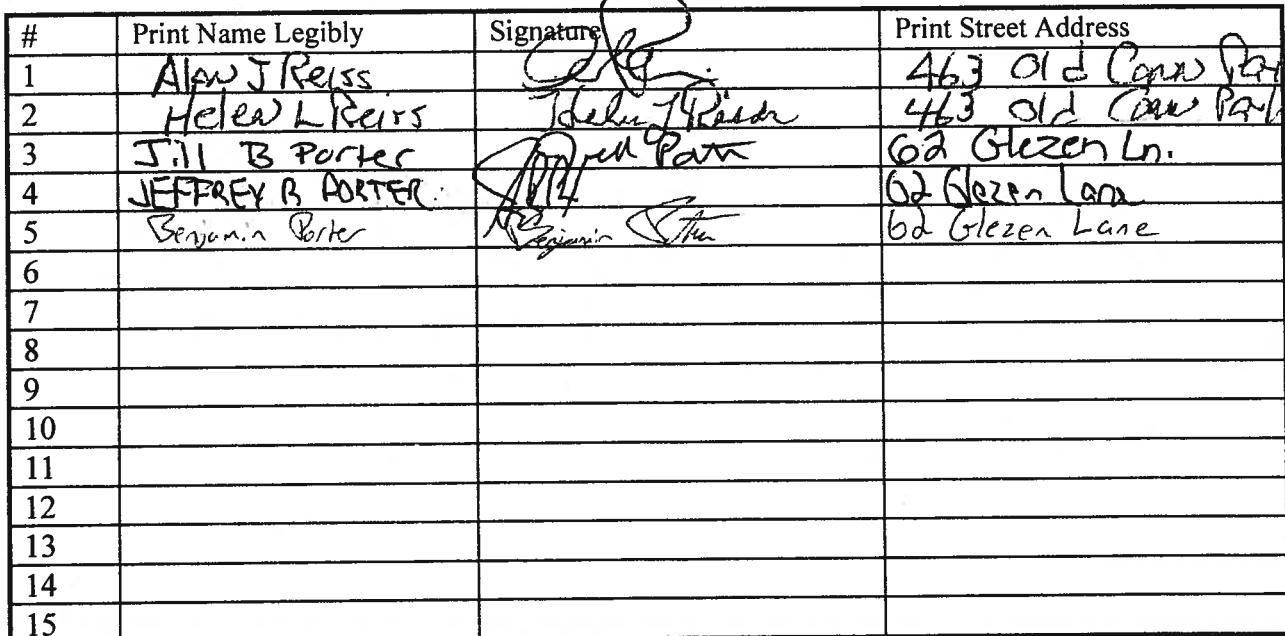 # Print Name Legibly Signature Print Street Address
1 Alan J Reiss 463 Old Conn
2 Helen L Reiss 463 Old Conn
3 Jill B Porter 62 Glezen Ln.
4 JEFFREY B PORTER. 62 Glezen Lane
5 Benjamin Porter Benjamin 62 Glezen Lane
6
7
8
9
10
11
12
13
14
15